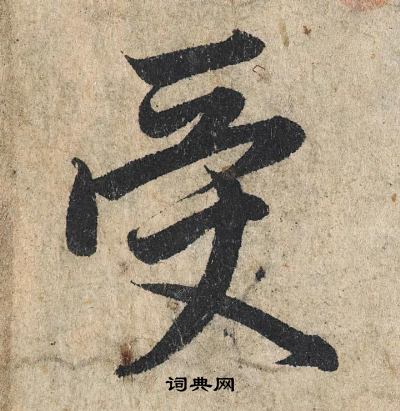 受
词典网